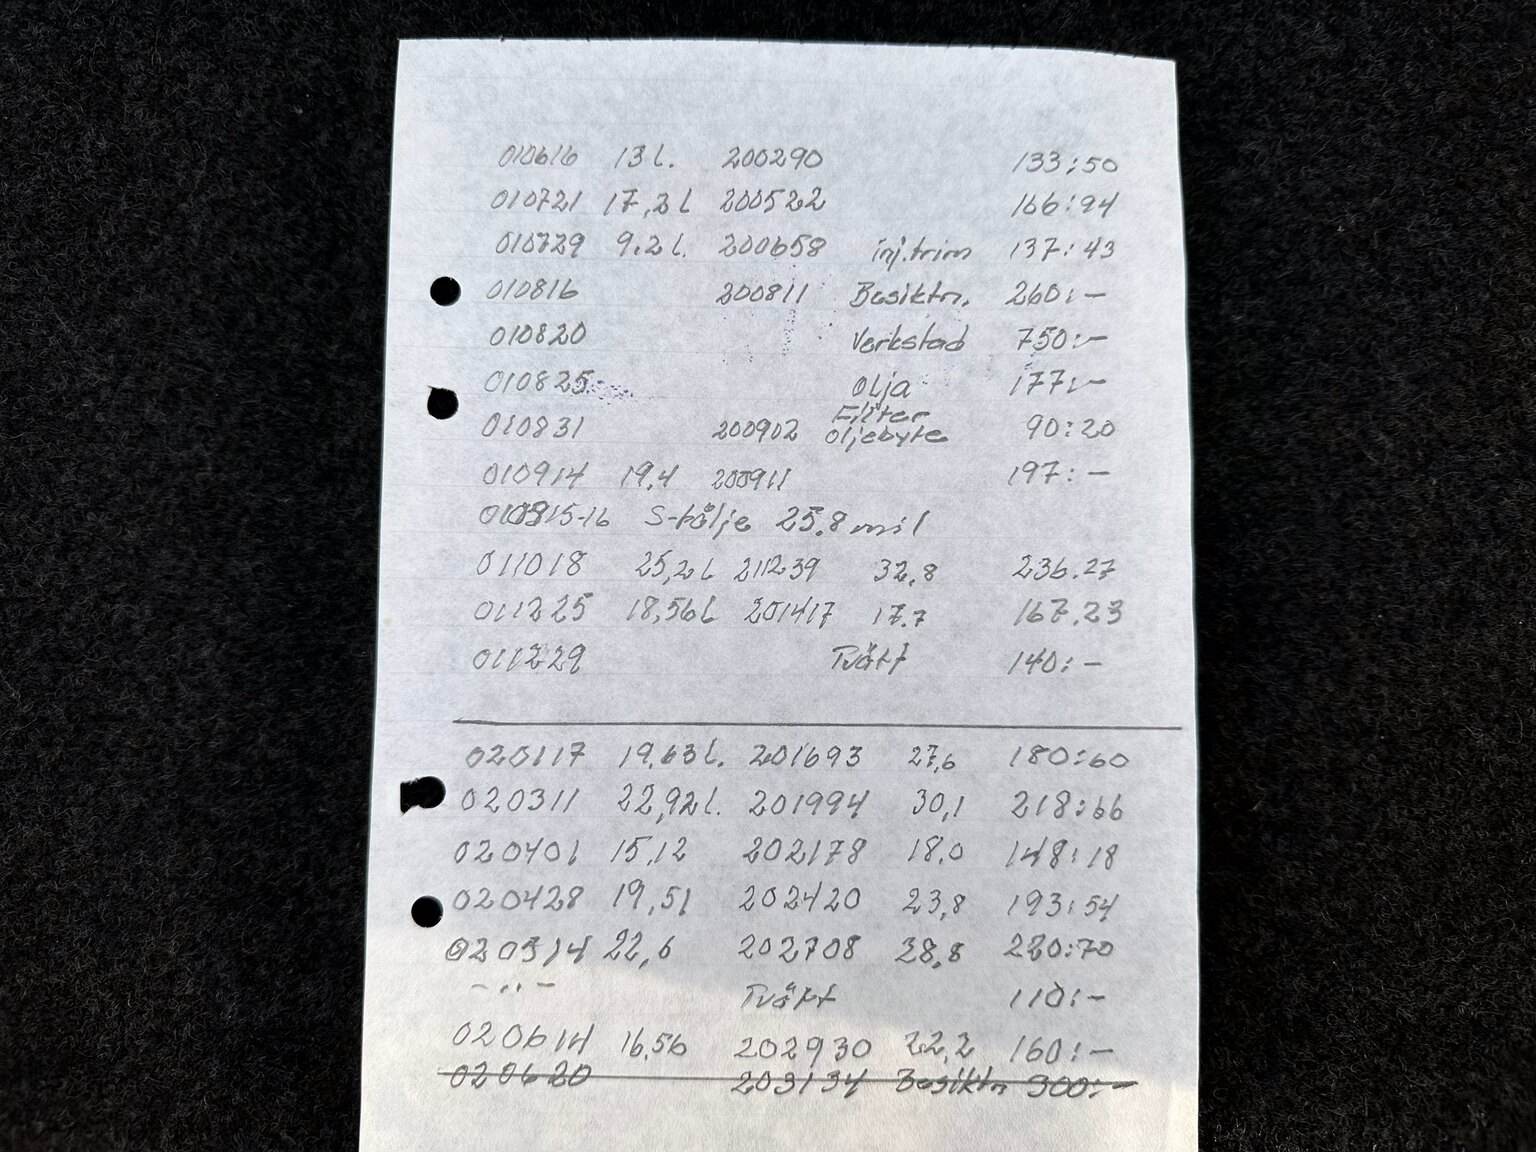 010616 13 l. 200290 133:50
010721 17,2 l 200522 166:94
010729 9.2 l. 200658 inj.trim 137:43
010816 200811 Besiktn. 260:-
010820 Verkstad 750:-
010825 olja 177:-
Filter
010831 200902 oljebyte 90:20
010914 19,4 200911 197:-
010915-16 S-tälje 25.8 mil
011018 25,2 l 201239 32,8 236.27
011225 18,56 l 201417 17.7 167.23
011229 Tvätt 140:-
020117 19,63 l. 201693 27,6 180:60
020311 22,92 l. 201994 30,1 218:66
020401 15,12 202178 18.0 148:18
020428 19,51 202420 23,8 193:54
020514 22,6 202708 28,8 220:70
-"- Tvätt 110:-
020614 16,56 202930 22,2 160:-
020620 203134 Besiktn 300:-